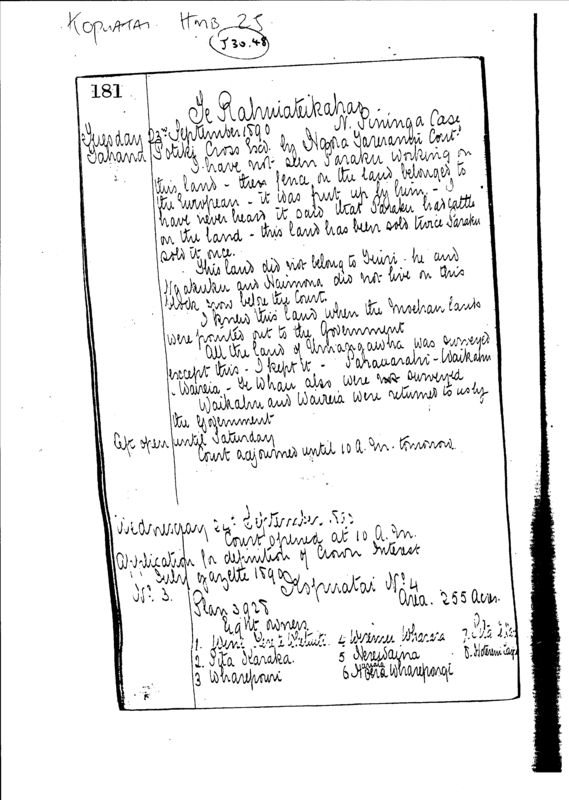 KOPUATAI HMB 25
J 30.48
181
Te Rahuiateikahas
Tuesday 23rd September 1890 N. Pininga Case
Potiki Cross Exd. by Ngora Tarerangi Court
I have not seen Paraku working on
this land - the fence on the land belonged to
the European - it was put up by him - I
have never heard it said that Paraku had cattle
on the land - this land has been sold twice Paraku
sold it once.
This land did not belong to and
Ngakuku and Naimona did not live on this
block now before the Court.
I knew this land when the lands
were pointed out to the Government
All the land of was surveyed
except this - I kept it - Waikahu
- Waireia - Te Whau also were not surveyed
Waikahu and Waireia were returned to us by
the Government
Left open until Saturday
Court adjourned until 10 A.M. tomorrow
Wednesday 24th September 1890
Court opened at 10 A.M.
Application for definition of Crown Interest
July gazette 1890
No. 3. Kopuatai No. 4
Plan 3928 Area. 255 Acres.
Eight owners
1. Wharara 7. Pita
2. Pita Karaka 5 8. Hoterene
3 Wharepouri 6 Hoera Wharepongi